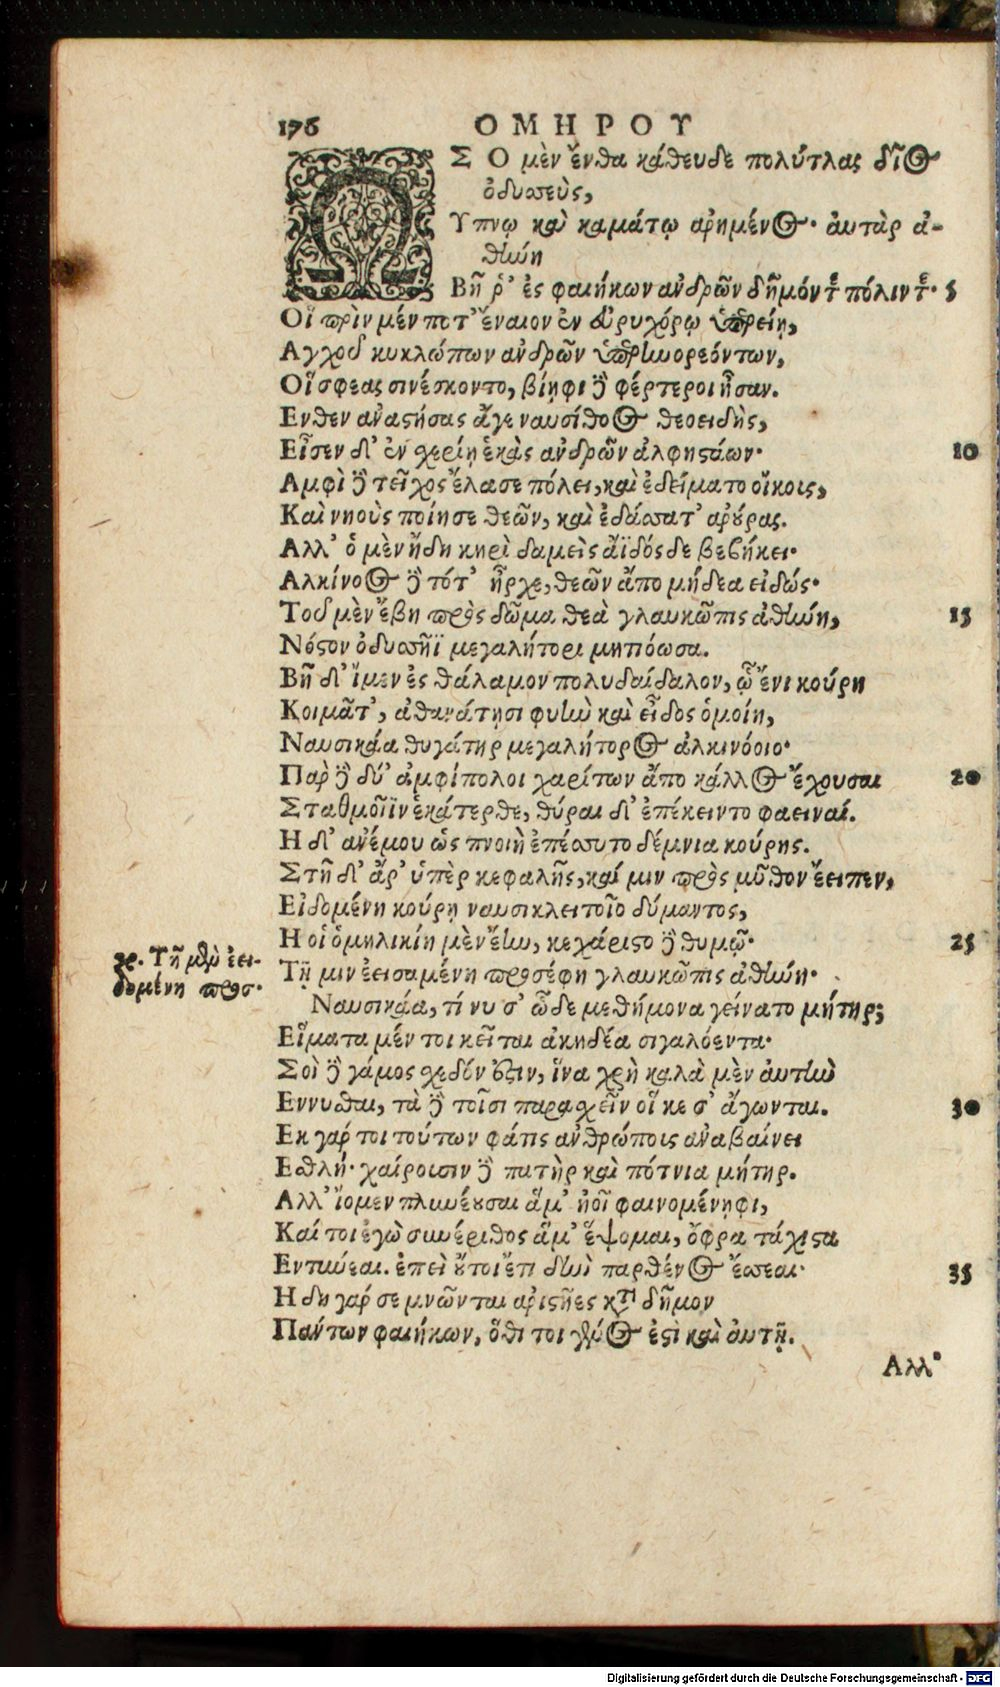 176 ΟΜΗΡΟΥ
ΩΣ Ο μὲν ἔνθα κάθευδε πολύτλας δῖος
ὀδυσσεὺς,
Υπνῳ καὶ καμάτῳ ἀρημένος· ἀυτὰρ ἀ-
θήνη
Βῆ ῥ' ἐς φαιήκων ἀνδρῶν δῆμόν τε πόλιν τε· 5
Οἳ πρὶν μέν ποτ' ἔναιον ἐν εὐρυχόρῳ ὑπερείῃ,
Αγχοῦ κυκλώπων ἀνδρῶν ὑπερηνορεόντων,
Οἵ σφεας σινέσκοντο, βίηφι δὲ φέρτεροι ἦσαν.
Ενθεν ἀναστήσας ἄγε ναυσίθοος θεοειδὴς,
Εἷσεν δ' ἐν σχερίῃ ἑκὰς ἀνδρῶν ἀλφηστάων· 10
Αμφὶ δὲ τεῖχος ἔλασε πόλει, καὶ ἐδείματο οἴκους,
Καὶ νηοὺς ποίησε θεῶν, καὶ ἐδάσσατ' ἀρούρας.
Αλλ' ὁ μὲν ἤδη κηρὶ δαμεὶς ἄϊδόσδε βεβήκει·
Αλκίνοος δὲ τότ' ἦρχε, θεῶν ἄπο μήδεα εἰδώς·
Τοῦ μὲν ἔβη πρὸς δῶμα θεὰ γλαυκῶπις ἀθήνη, 15
Νόστον ὀδυσσῆϊ μεγαλήτορι μητιόωσα.
Βῆ δ' ἴμεν ἐς θάλαμον πολυδαίδαλον, ᾧ ἔνι κούρη
Κοιμᾶτ', ἀθανάτῃσι φυὴν καὶ εἶδος ὁμοίη,
Ναυσικάα θυγάτηρ μεγαλήτορος ἀλκινόοιο·
Παρ δὲ δύ' ἀμφίπολοι χαρίτων ἄπο κάλλος ἔχουσαι 20
Σταθμοῖϊν ἑκάτερθε, θύραι δ' ἐπέκειντο φαειναί.
Η δ' ἀνέμου ὡς πνοιὴ ἐπέσσυτο δέμνια κούρης.
Στῆ δ' ἄρ' ὑπὲρ κεφαλῆς, καί μιν πρὸς μῦθον ἔειπεν,
Εἰδομένη κούρῃ ναυσικλειτοῖο δύμαντος,
Η οἱ ὁμηλικίη μὲν ἔην, κεχάριστο δὲ θυμῷ· 25
γρ. Τῇ μὲν ἐει-
δομένη προσ·
Τῇ μιν ἐεισαμένη προσέφη γλαυκῶπις ἀθήνη·
Ναυσικάα, τί νυ σ' ὧδε μεθήμονα γείνατο μήτηρ;
Εἵματα μέν τοι κεῖται ἀκηδέα σιγαλόεντα·
Σοὶ δὲ γάμος σχεδόν ἐστιν, ἵνα χρὴ καλὰ μὲν ἀυτὴν
Εννυσθαι, τὰ δὲ τοῖσι παρασχεῖν οἵ κε σ' ἄγωνται. 30
Εκ γάρ τοι τούτων φάτις ἀνθρώποις ἀναβαίνει
Εσθλή· χαίρουσιν δὲ πατὴρ καὶ πότνια μήτηρ.
Αλλ' ἴομεν πλυνέουσαι ἅμ' ἠοῖ φαινομένηφι,
Καί τοι ἐγὼ συνέριθος ἅμ' ἕψομαι, ὄφρα τάχιστα
Εντύνεαι. ἐπεὶ οὔτοι ἔτι δὴν παρθένος ἔσσεαι· 35
Η δη γάρ σε μνῶνται ἀριστῆες κατὰ δῆμον
Πάντων φαιήκων, ὅθι τοι γένος ἐστὶ καὶ ἀυτῇ.
Αλλ'
Digitalisierung gefördert durch die Deutsche Forschungsgemeinschaft - DFG